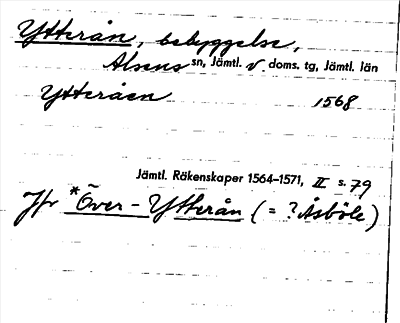 Ytterån, bebyggelse,
Alsens sn, Jämtl. v. doms. tg, Jämtl. län
Ytteråen 1568
Jämtl. Räkenskaper 1564–1571, II s. 79
Jfr *Över-Ytterån (= ? Åsböle)